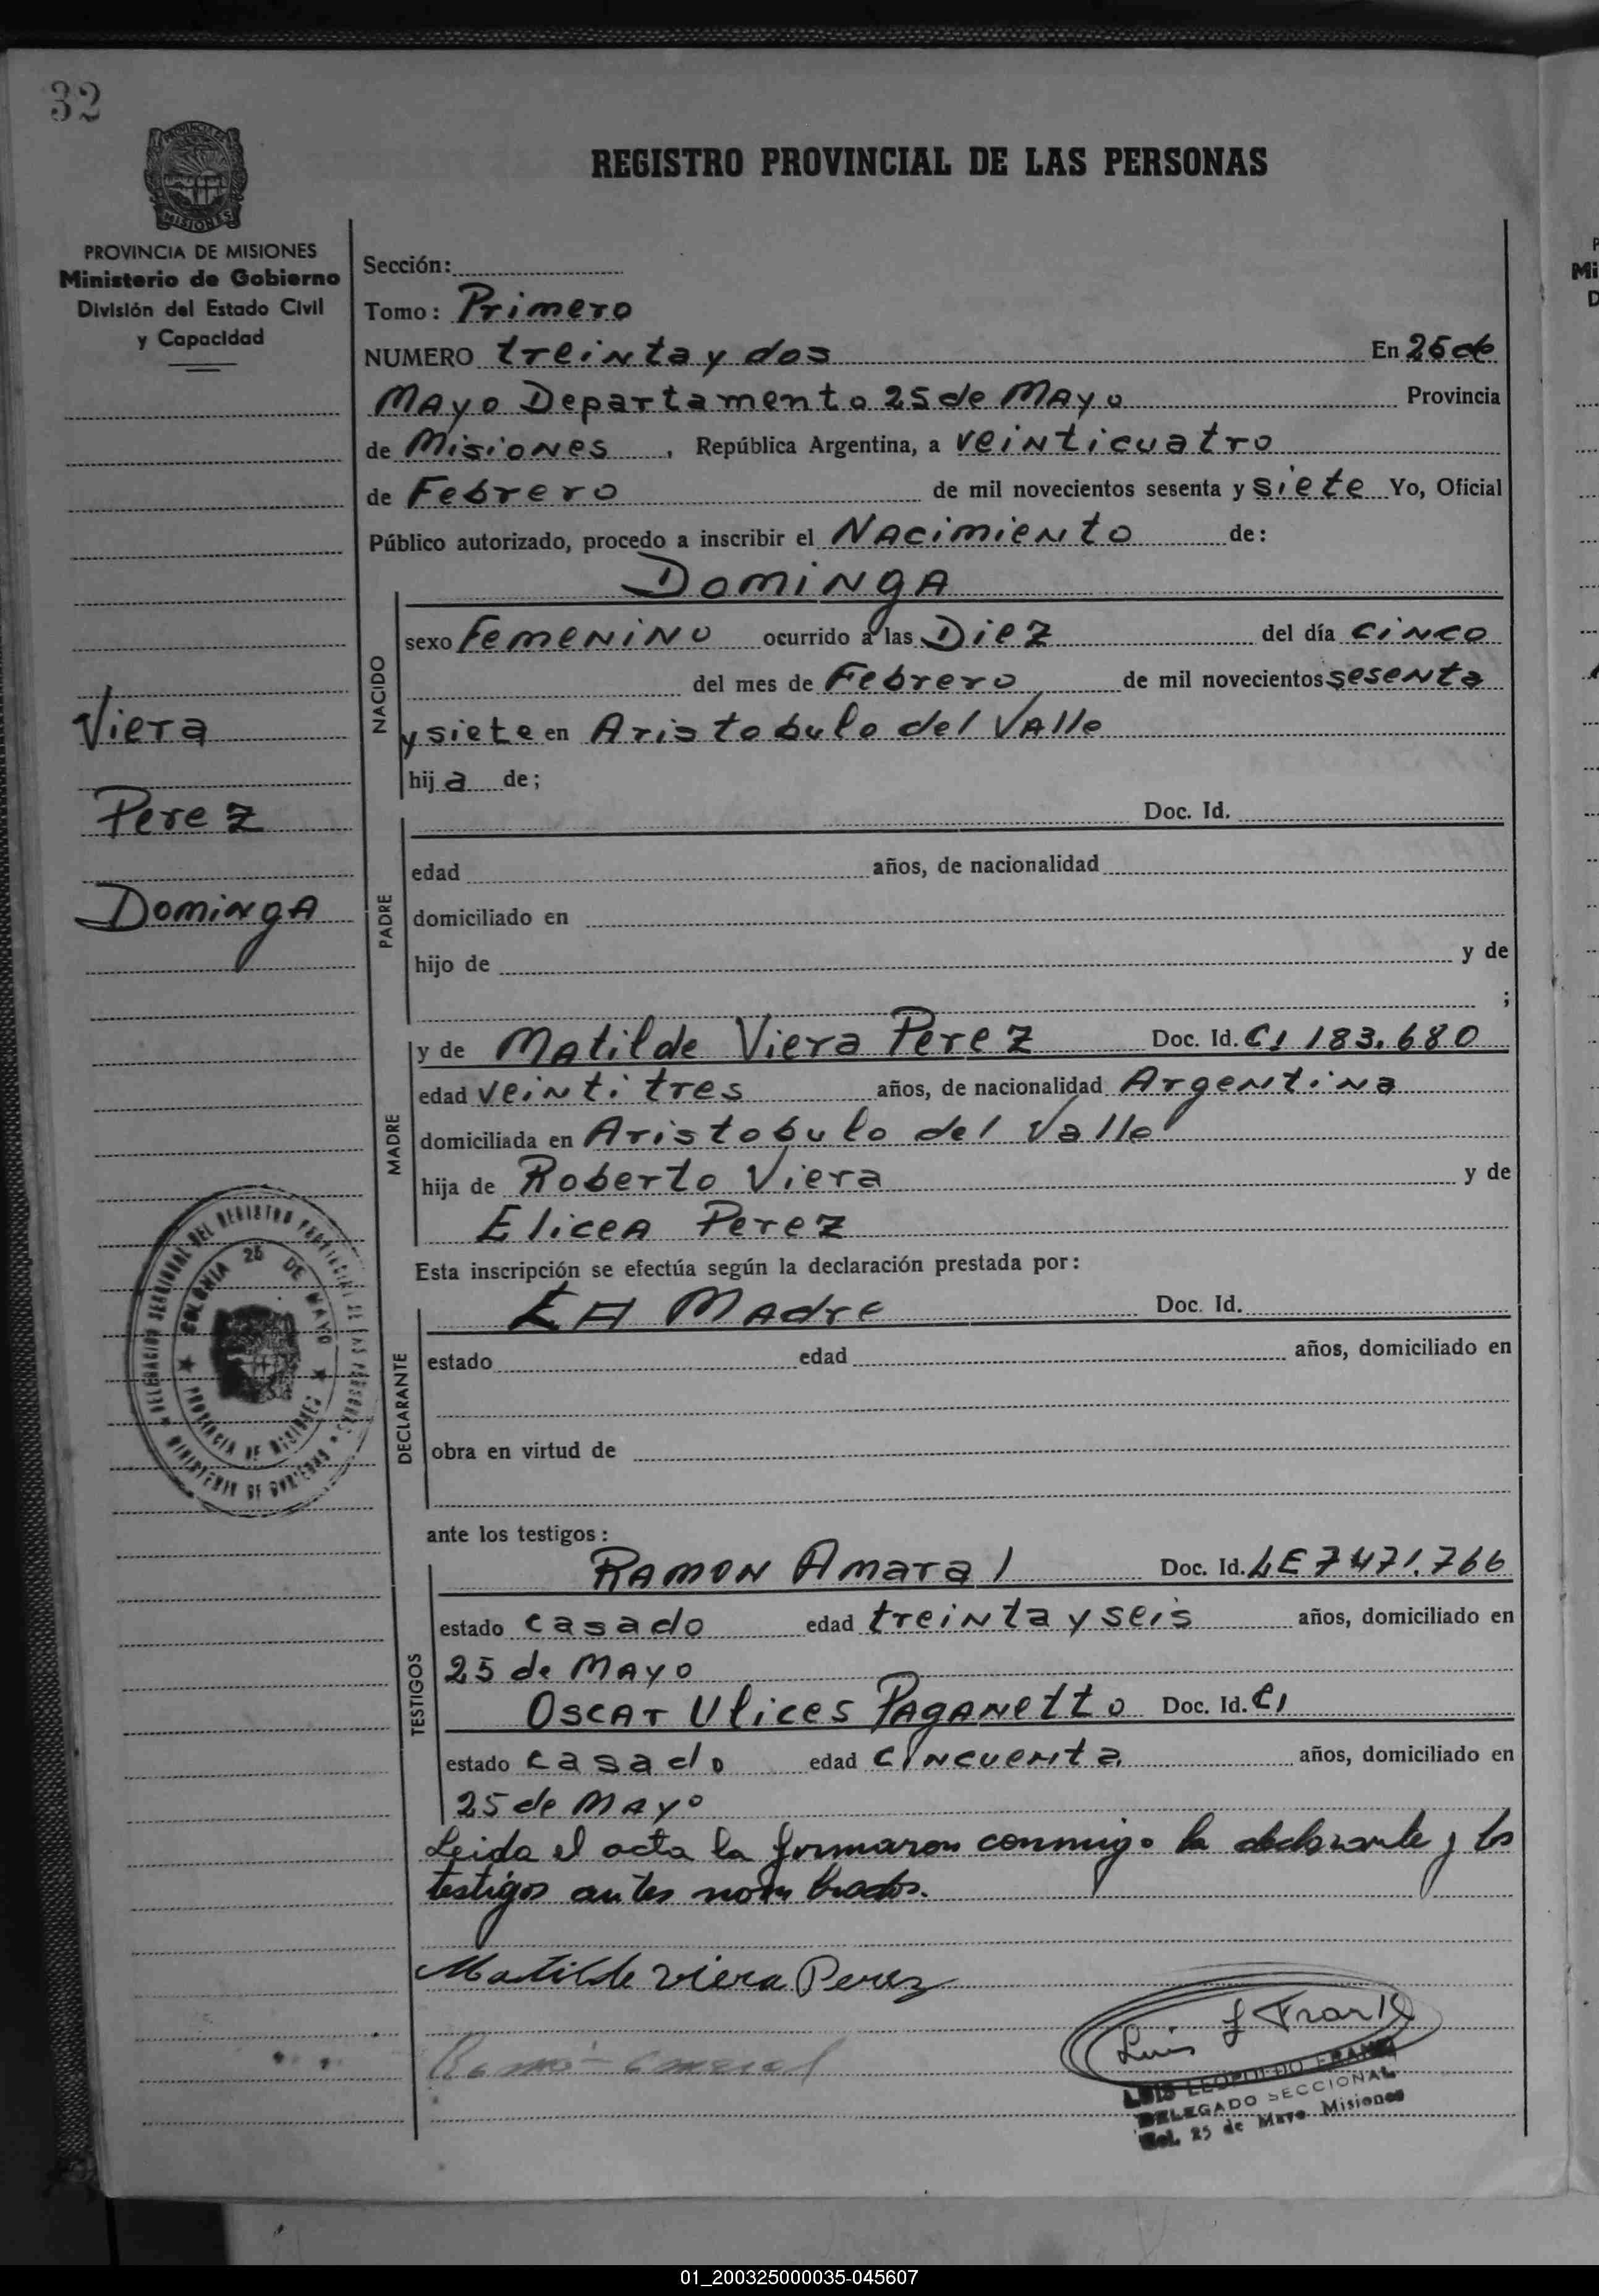 32
PROVINCIA DE MISIONES
Ministerio de Gobierno
División del Estado Civil
y Capacidad
REGISTRO PROVINCIAL DE LAS PERSONAS
Sección:
Tomo: Primero
NUMERO treinta y dos En 25 de
Mayo Departamento 25 de Mayo Provincia
de Misiones, República Argentina, a veinticuatro
de Febrero de mil novecientos sesenta y siete Yo, Oficial
Público autorizado, procedo a inscribir el Nacimiento de:
Viera
Perez
Dominga
NACIDO
Dominga
sexo Femenino ocurrido a las Diez del día cinco
del mes de Febrero de mil novecientos sesenta
y siete en Aristobulo del Valle
hija de;
PADRE
Doc. Id.
edad años, de nacionalidad
domiciliado en
hijo de y de
;
MADRE
y de Matilde Viera Perez Doc. Id. CI 183.680
edad veintitres años, de nacionalidad Argentina
domiciliada en Aristobulo del Valle
hija de Roberto Viera y de
Elicea Perez
Esta inscripción se efectúa según la declaración prestada por:
DECLARANTE
LA Madre Doc. Id.
estado edad años, domiciliado en
obra en virtud de
ante los testigos:
TESTIGOS
Ramon Amaral Doc. Id. LE 7471.766
estado casado edad treinta y seis años, domiciliado en
25 de Mayo
Oscar Ulices Paganetto Doc. Id. CI
estado casado edad cincuenta años, domiciliado en
25 de Mayo
Leida el acta la firmaron conmigo la declarante y los
testigos antes nombrados.
Matilde Viera Perez
Luis L Frank
LUIS LEOPOLDO FRANK
DELEGADO SECCIONAL
Col. 25 de Mayo Misiones
DELEGACION SECCIONAL DEL REGISTRO PROVINCIAL DE LAS PERSONAS
MINISTERIO DE GOBIERNO
COLONIA 25 DE MAYO
PROVINCIA DE MISIONES
01_200325000035-045607